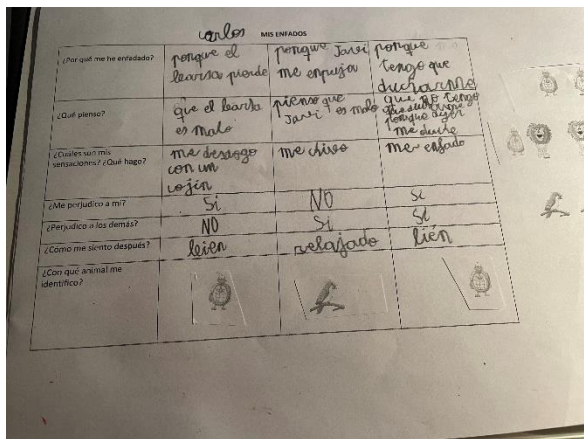 carlos MIS ENFADOS
¿Por qué me he enfadado?
porque el
bearsa pierde
porque Javi
me enpuja
porque
tengo que
ducharme
¿Qué pienso?
que el bearsa
es malo
pienso que
Javi es malo
que no tengo
que ducharme
porque ayer
me duche
¿Cuáles son mis
sensaciones? ¿Qué hago?
me desaogo
con un
cojin
me chivo
me enfado
¿Me perjudico a mí?
Si
NO
Si
¿Perjudico a los demás?
NO
Si
Si
¿Cómo me siento después?
bien
relajado
bién
¿Con qué animal me
identifico?